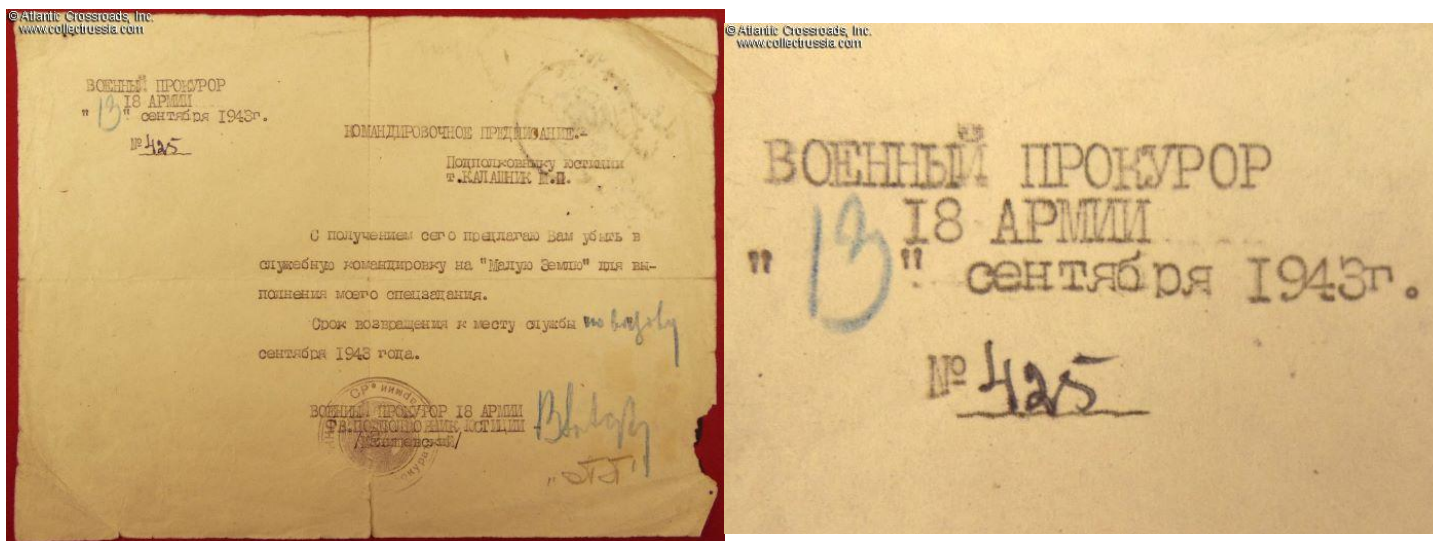 © Atlantic Crossroads, Inc.
www.collectrussia.com
ВОЕННЫЙ ПРОКУРОР
18 АРМИИ
"13" сентября 1943г.
№ 425
КОМАНДИРОВОЧНОЕ ПРЕДПИСАНИЕ.-
Подполковнику юстиции
т.КАЛАШНИК М.П.
С получением сего предлагаю Вам убыть в
служебную командировку на "Малую Землю" для вы-
полнения моего спецзадания.
Срок возвращения к месту службы по вызову
сентября 1943 года.
ВОЕННЫЙ ПРОКУРОР 18 АРМИИ
ПОДПОЛКОВНИК ЮСТИЦИИ
© Atlantic Crossroads, Inc.
www.collectrussia.com
ВОЕННЫЙ ПРОКУРОР
18 АРМИИ
"13" сентября 1943г.
№ 425